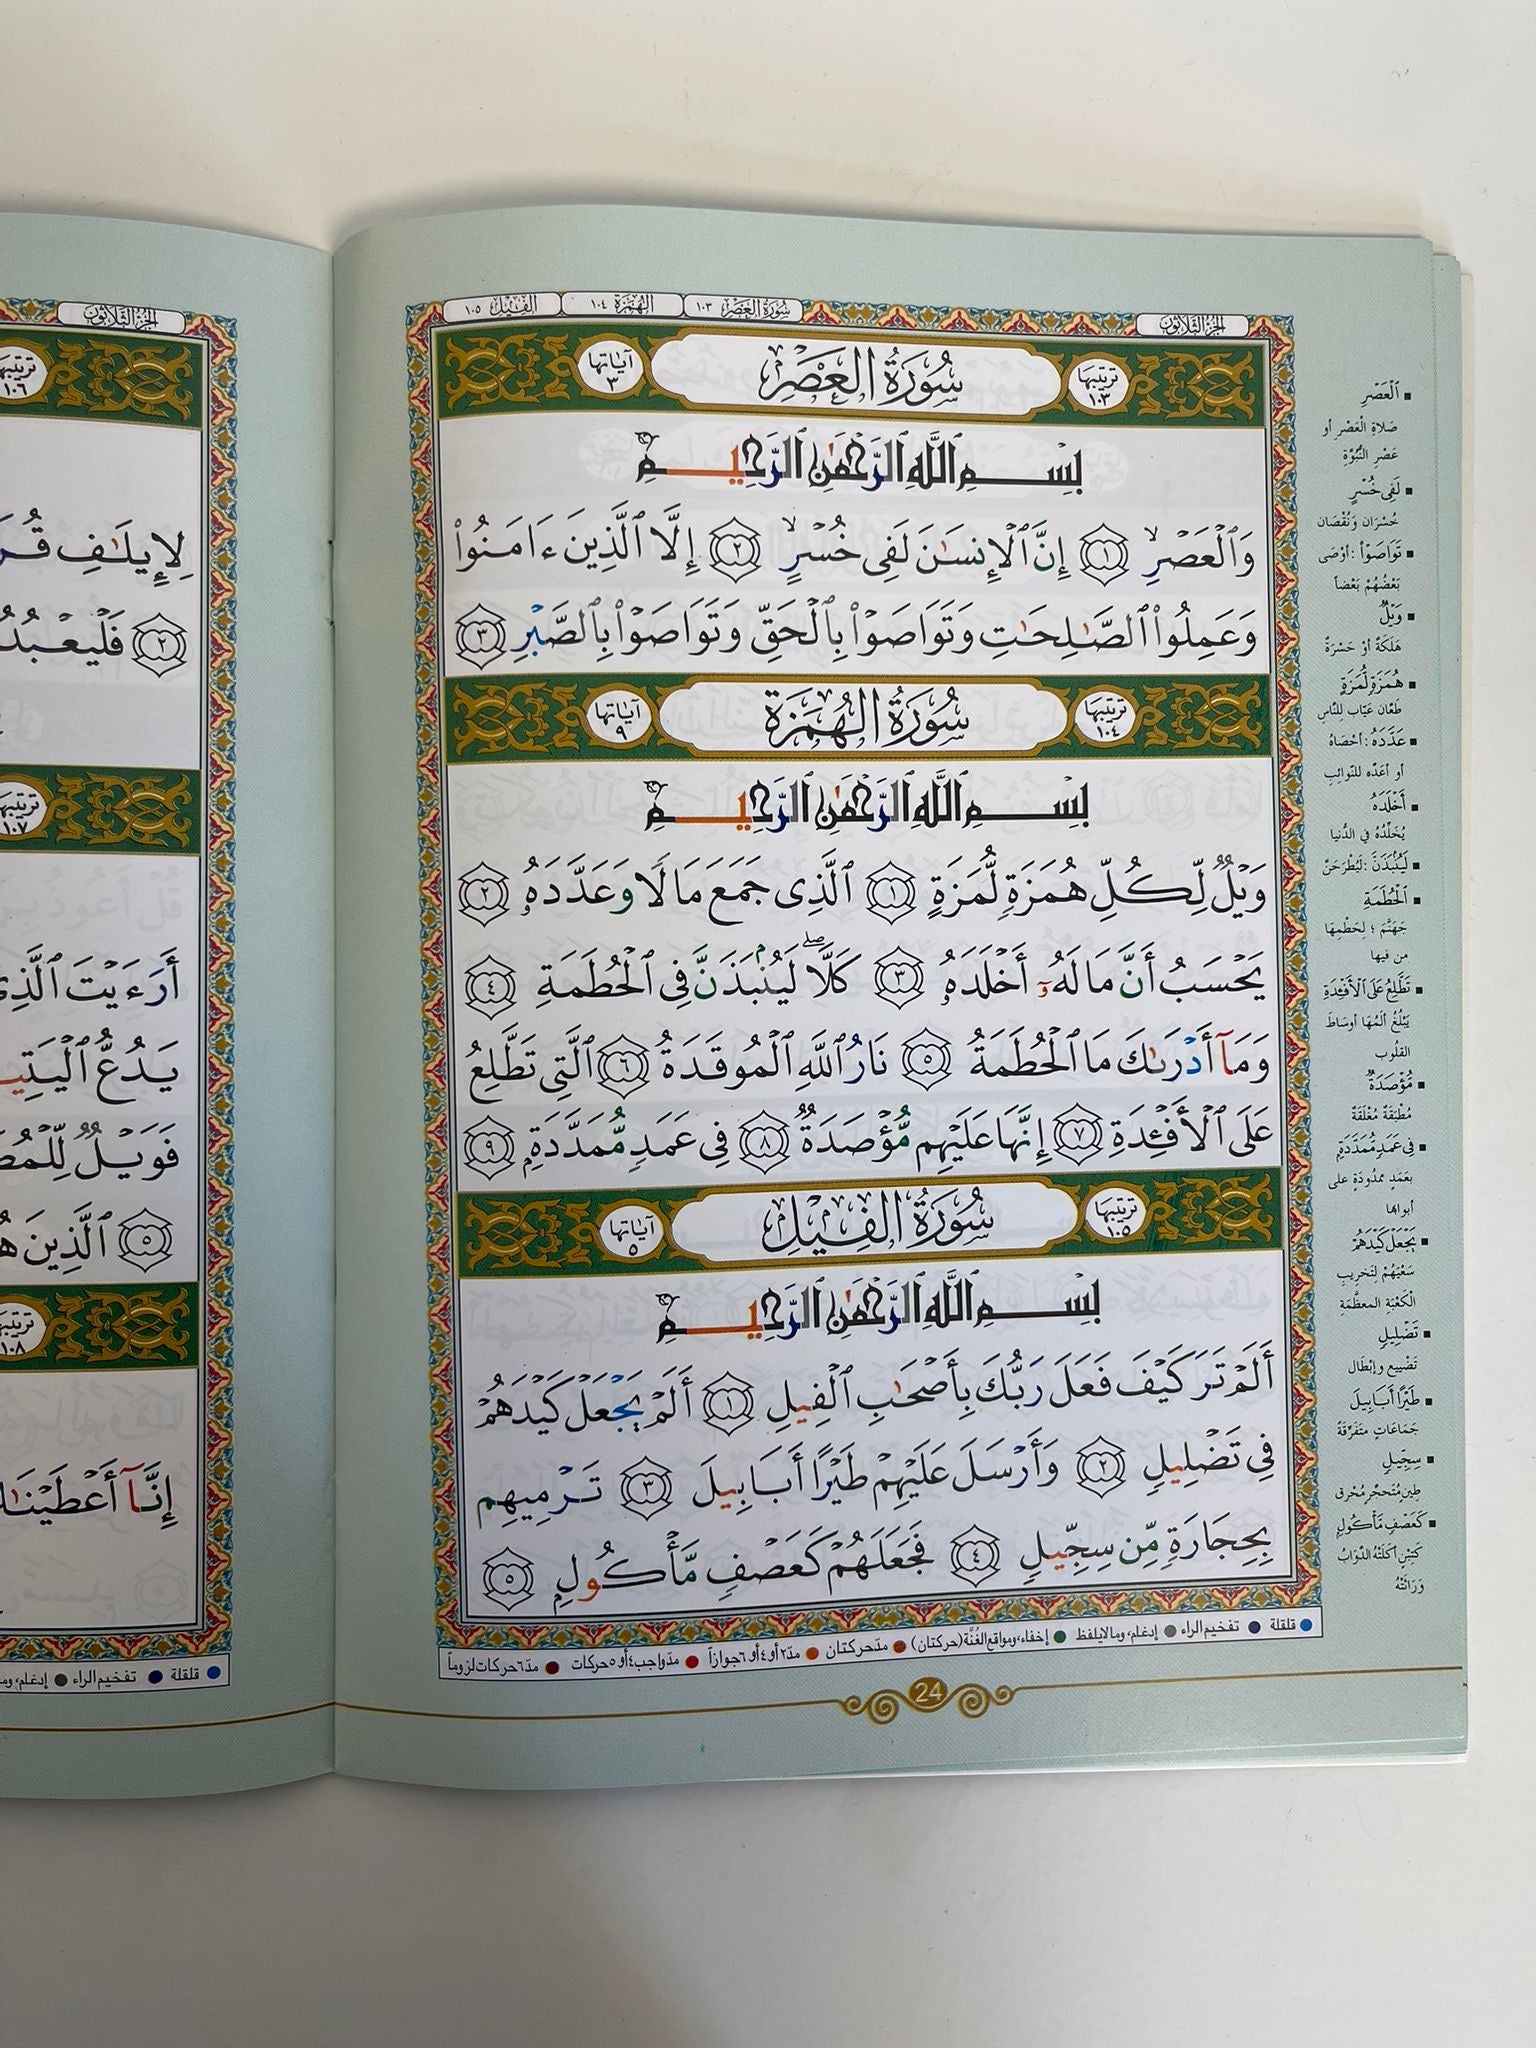 الجزء الثلاثون
سورة العصر ١٠٣
الهمزة ١٠٤
الفيل ١٠٥
ترتيبها ١٠٣
سُورَةُ العَصْرِ
آياتها ٣
بِسْمِ ٱللَّهِ ٱلرَّحْمَٰنِ ٱلرَّحِيمِ
وَٱلْعَصْرِ ١ إِنَّ ٱلْإِنسَٰنَ لَفِى خُسْرٍ ٢ إِلَّا ٱلَّذِينَ ءَامَنُوا۟
وَعَمِلُوا۟ ٱلصَّٰلِحَٰتِ وَتَوَاصَوْا۟ بِٱلْحَقِّ وَتَوَاصَوْا۟ بِٱلصَّبْرِ ٣
ترتيبها ١٠٤
سُورَةُ الهُمَزَةِ
آياتها ٩
بِسْمِ ٱللَّهِ ٱلرَّحْمَٰنِ ٱلرَّحِيمِ
وَيْلٌ لِّكُلِّ هُمَزَةٍ لُّمَزَةٍ ١ ٱلَّذِى جَمَعَ مَالًا وَعَدَّدَهُۥ ٢
يَحْسَبُ أَنَّ مَالَهُۥٓ أَخْلَدَهُۥ ٣ كَلَّا ۖ لَيُنۢبَذَنَّ فِى ٱلْحُطَمَةِ ٤
وَمَآ أَدْرَىٰكَ مَا ٱلْحُطَمَةُ ٥ نَارُ ٱللَّهِ ٱلْمُوقَدَةُ ٦ ٱلَّتِى تَطَّلِعُ
عَلَى ٱلْأَفْـِٔدَةِ ٧ إِنَّهَا عَلَيْهِم مُّؤْصَدَةٌ ٨ فِى عَمَدٍ مُّمَدَّدَةٍۭ ٩
ترتيبها ١٠٥
سُورَةُ الفِيلِ
آياتها ٥
بِسْمِ ٱللَّهِ ٱلرَّحْمَٰنِ ٱلرَّحِيمِ
أَلَمْ تَرَ كَيْفَ فَعَلَ رَبُّكَ بِأَصْحَٰبِ ٱلْفِيلِ ١ أَلَمْ يَجْعَلْ كَيْدَهُمْ
فِى تَضْلِيلٍ ٢ وَأَرْسَلَ عَلَيْهِمْ طَيْرًا أَبَابِيلَ ٣ تَرْمِيهِم
بِحِجَارَةٍ مِّن سِجِّيلٍ ٤ فَجَعَلَهُمْ كَعَصْفٍ مَّأْكُولٍ ٥
ٱلْعَصْرِ
صَلاةِ الْعَصْرِ أو
عَصْرِ النُّبُوَّةِ
لَفِى خُسْرٍ
خُسْرَان وَنُقْصَان
تَوَاصَوْا۟ : أوْصَى
بَعْضُهُمْ بَعْضاً
وَيْلٌ
هَلَكَةٌ أوْ حَسْرَةٌ
هُمَزَةٍ لُّمَزَةٍ
طَعَّان عَيَّاب للنَّاسِ
عَدَّدَهُ : أحْصَاهُ
أو أعَدَّه للنّوائِبِ
أَخْلَدَهُ
يُخَلِّدُهُ في الدُّنيا
لَيُنۢبَذَنَّ : لَيُطْرَحَنَّ
ٱلْحُطَمَةِ
جَهَنَّمَ ؛ لِحَطْمِهَا
من فيها
تَطَّلِعُ عَلَى ٱلْأَفْـِٔدَةِ
يَبْلُغُ ألَمُهَا أوسَاطَ
القلُوب
مُؤْصَدَةٌ
مُطْبَقَةٌ مُغْلَقَةٌ
فِى عَمَدٍ مُّمَدَّدَةٍۭ
بعَمَدٍ ممْدُودَةٍ على
أبوابها
يَجْعَلْ كَيْدَهُمْ
سَعْيَهُمْ لِتَخرِيبِ
الْكَعْبَةِ المعظَّمَةِ
تَضْلِيلٍ
تَضْيِيعٍ وإبْطَال
طَيْرًا أَبَابِيلَ
جَمَاعَاتٍ متَفَرِّقَةً
سِجِّيلٍ
طِينٍ مُتَحجِّرٍ مُحْرق
كَعَصْفٍ مَّأْكُولٍ
كَتِبْنٍ أكَلَتْهُ الدَّوَابُّ
وَرَاثَتْهُ
قلقلة
تفخيم الراء
إدغام، ومالايلفظ
إخفاء، ومواقع الغُنَّة (حركتان)
مدّ حركتان
مدّ ٢ أو ٤ أو ٦ جوازاً
مدّ واجب ٤ أو ٥ حركات
مدّ ٦ حركات لزوماً
24
الجزء الثلاثون
ترتيبها ١٠٦
لِإِيلَٰفِ
٢ فَلْيَعْبُدُ
ترتيبها ١٠٧
أَرَءَيْتَ ٱلَّذِى
يَدُعُّ ٱلْيَتِي
فَوَيْلٌ لِّلْمُصَ
٥ ٱلَّذِينَ هُ
ترتيبها ١٠٨
إِنَّآ أَعْطَيْنَٰ
قلقلة
تفخيم الراء
إدغام، وم